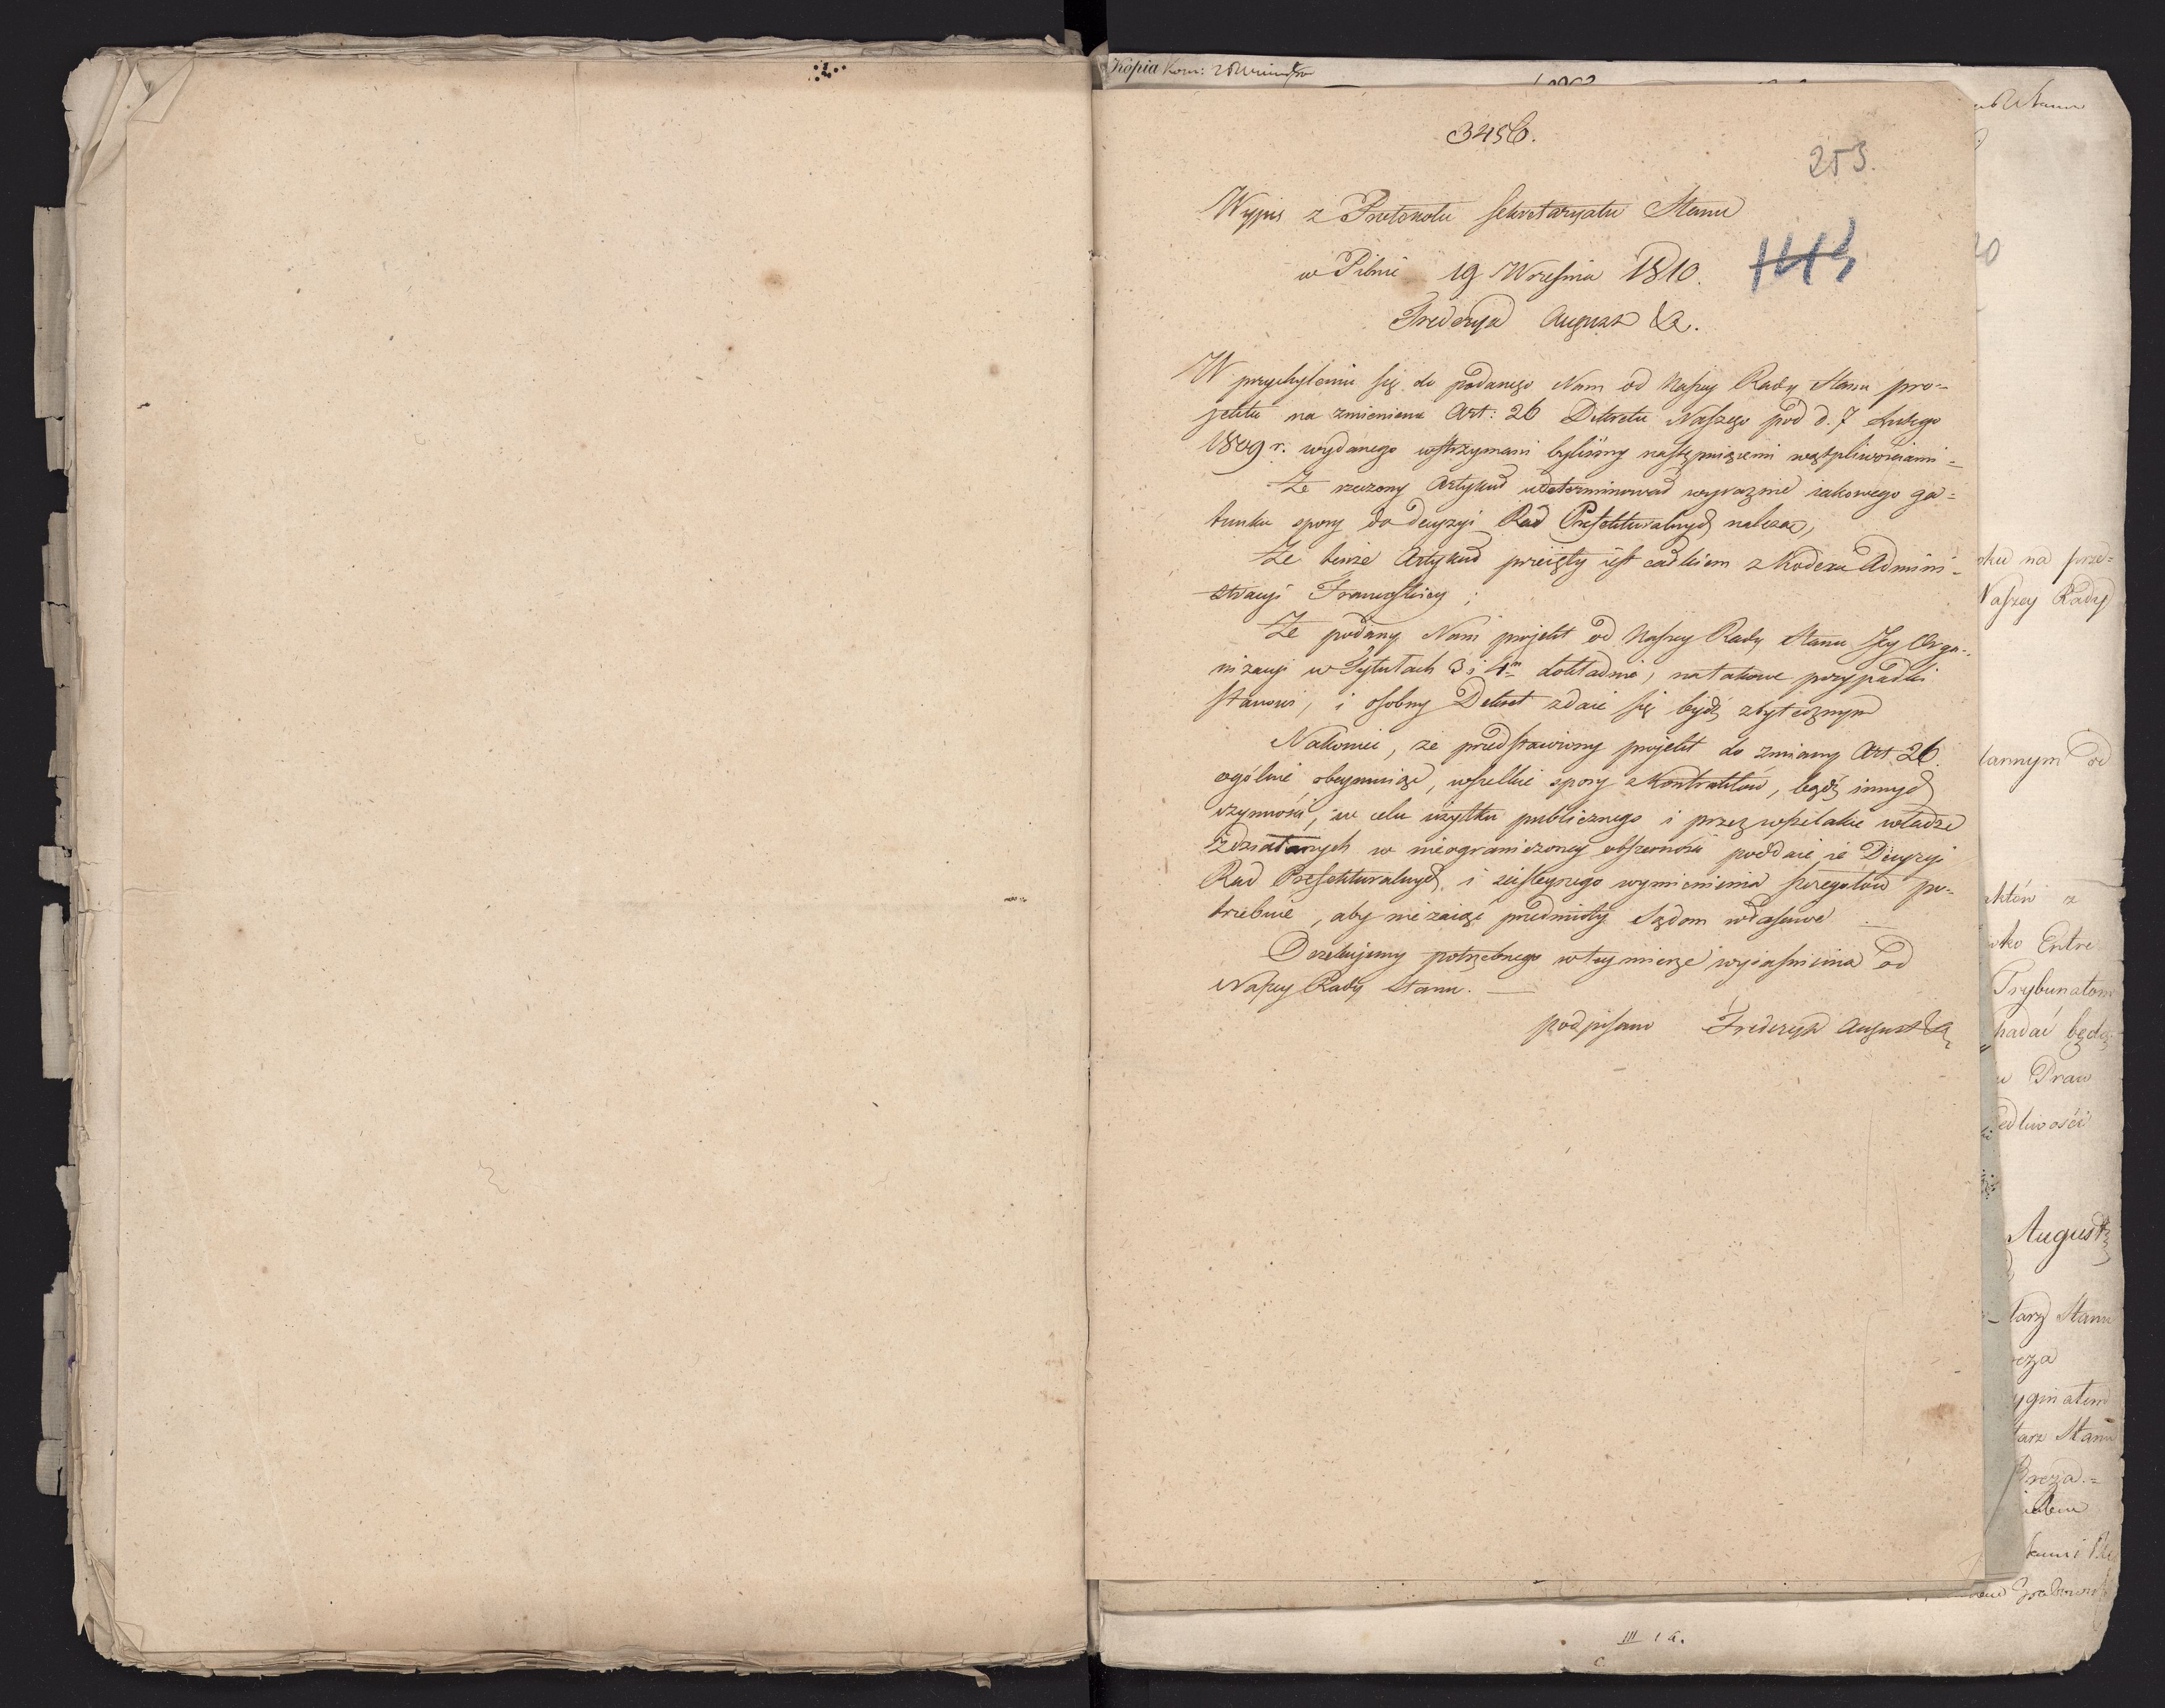 Kopia
3456.
253.
Wypis z Protokołu Sekretaryatu Stanu
w Pilnie 19 Wrześnie 1810.
1145
Frederyk August &.
W przychyleniu się do podanego Nam od Naszey Rady Stanu pro-
jektu na zmienienie Art: 26 Dekretu Naszego pod d. 7 Lutego
1809 r. wydanego wstrzymani byliśmy następuiącemi wątpliwościami =
Że rzeczony Artykuł udeterminował wyraznie iakowego ga=
tunku spory do decyzyi Rad Prefekturalnych należą,
Że tenże Artykuł przeięty iest całkiem z Kodexu Admini-
stracyi Francuskiey;
Że podany Nam projekt od Naszey Rady Stanu Jey Orga-
nizacyi w Tytułach 3 i 4m dokładnie, na takowe przypadki
stanowi, i osobny Dekret zdaie się bydź zbytecznym
Nakoniec, że przedstawiony projekt do zmiany Art 26.
ogólnie obeymuiąc, wszelkie spory z Kontraktów, bądź innych
czynności, w celu użytku publicznego i przez wszelakie władze
zdziałanych w nieograniczoney obszerności poddaie ie Decyzyi
Rad Prefekturalnych, i ściśleyszego wymienienia szczegułów po-
trzebuie, aby nie zaiąć przedmioty Sądom właściwe
Oczekujemy potrzebnego w tey mierze wyiaśnienia od
Naszey Rady Stanu. —
podpisano Frederyk August &
oku na prze=
Naszey Rady
od
któw z
Entre
Trybunałom
będą
Praw
edliwości
August
tarz Stanu
eza
yginałem
tarz Stanu
Breza.=
III 1 a.